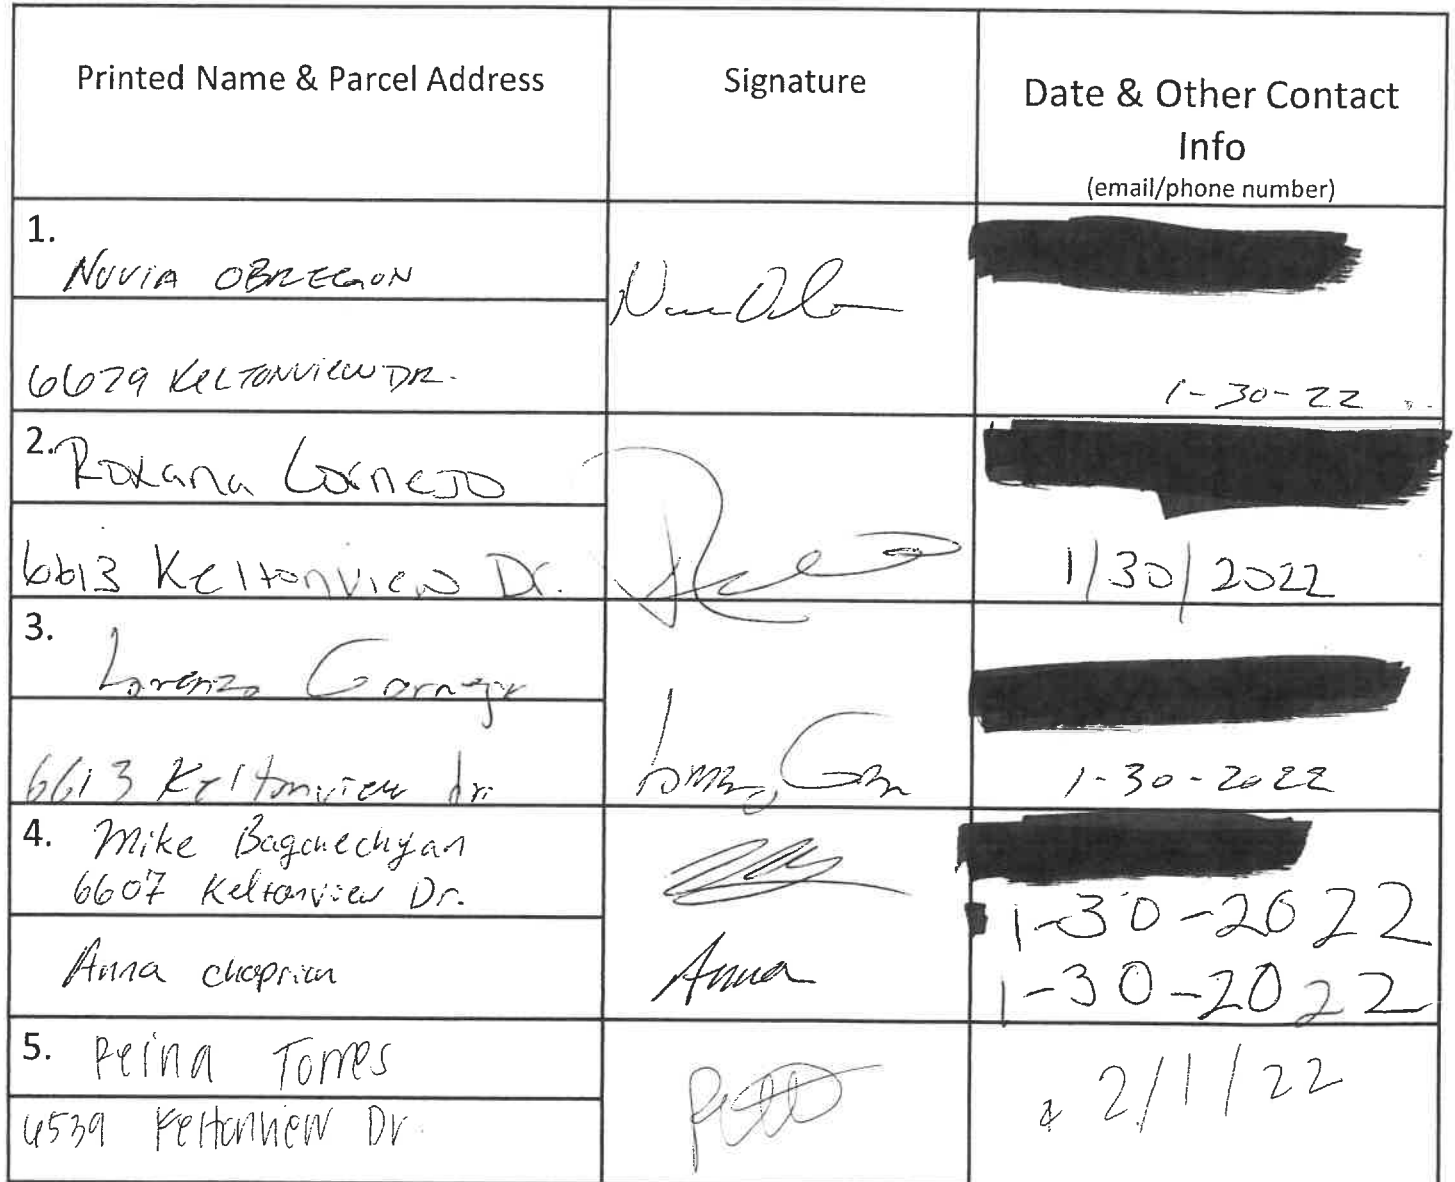 Printed Name & Parcel Address
Signature
Date & Other Contact
Info
(email/phone number)
1.
NUVIA OBREGON
6629 KELTONVIEW DR.
1-30-22
2. Roxana Cornejo
6613 Keltonview Dr.
1/30/2022
3.
Lorenzo Cornejo
6613 Keltonview dr.
1-30-2022
4. Mike Bagchechyan
6607 Keltonview Dr.
1-30-2022
Anna
Anna
1-30-2022
5. Reina Torres
2/1/22
6539 Keltonview Dr.